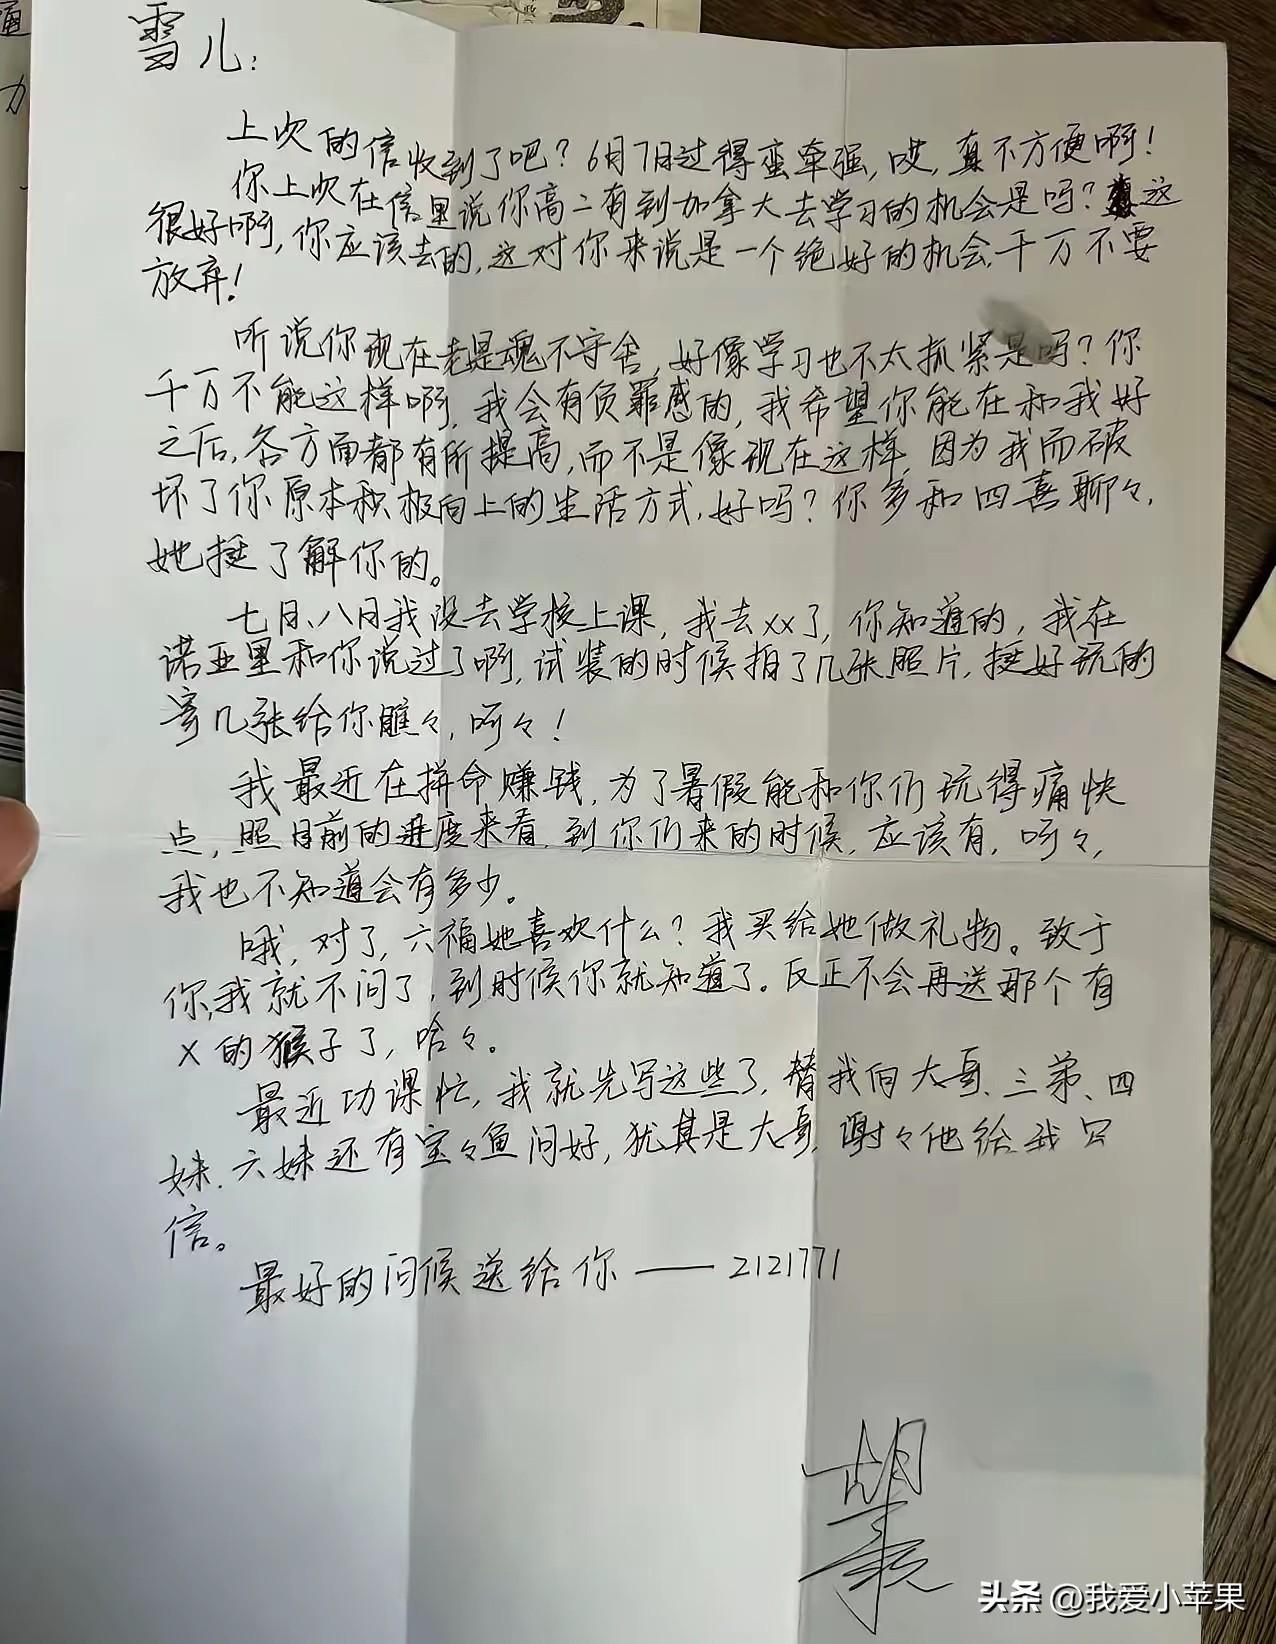 雪儿：
上次的信收到了吧？6月7日过得蛮牵强，哎，真不方便啊！
你上次在信里说你高二有到加拿大去学习的机会是吗？这
很好啊，你应该去的，这对你来说是一个绝好的机会，千万不要
放弃！
听说你现在老是魂不守舍，好像学习也不太抓紧是吗？你
千万不能这样啊，我会有负罪感的，我希望你能在和我好
之后，各方面都有所提高，而不是像现在这样，因为我而破
坏了你原本积极向上的生活方式，好吗？你多和四喜聊々，
她挺了解你的。
七月、八月我没去学校上课，我去xx了，你知道的，我在
诺亚里和你说过了啊，试装的时候拍了几张照片，挺好玩的
寄几张给你瞧々，呵々！
我最近在拼命赚钱，为了暑假能和你们玩得痛快
点，照目前的进度来看，到你们来的时候，应该有，呵々，
我也不知道会有多少。
哦，对了，六福她喜欢什么？我买给她做礼物。致于
你，我就不问了，到时候你就知道了。反正不会再送那个有
X的猴子了，哈々。
最近功课忙，我就先写这些了，替我向大哥、三弟、四
妹、六妹还有宝々鱼问好，犹其是大哥，谢々他给我写
信。
最好的问候送给你——2121771
胡
头条 @我爱小苹果